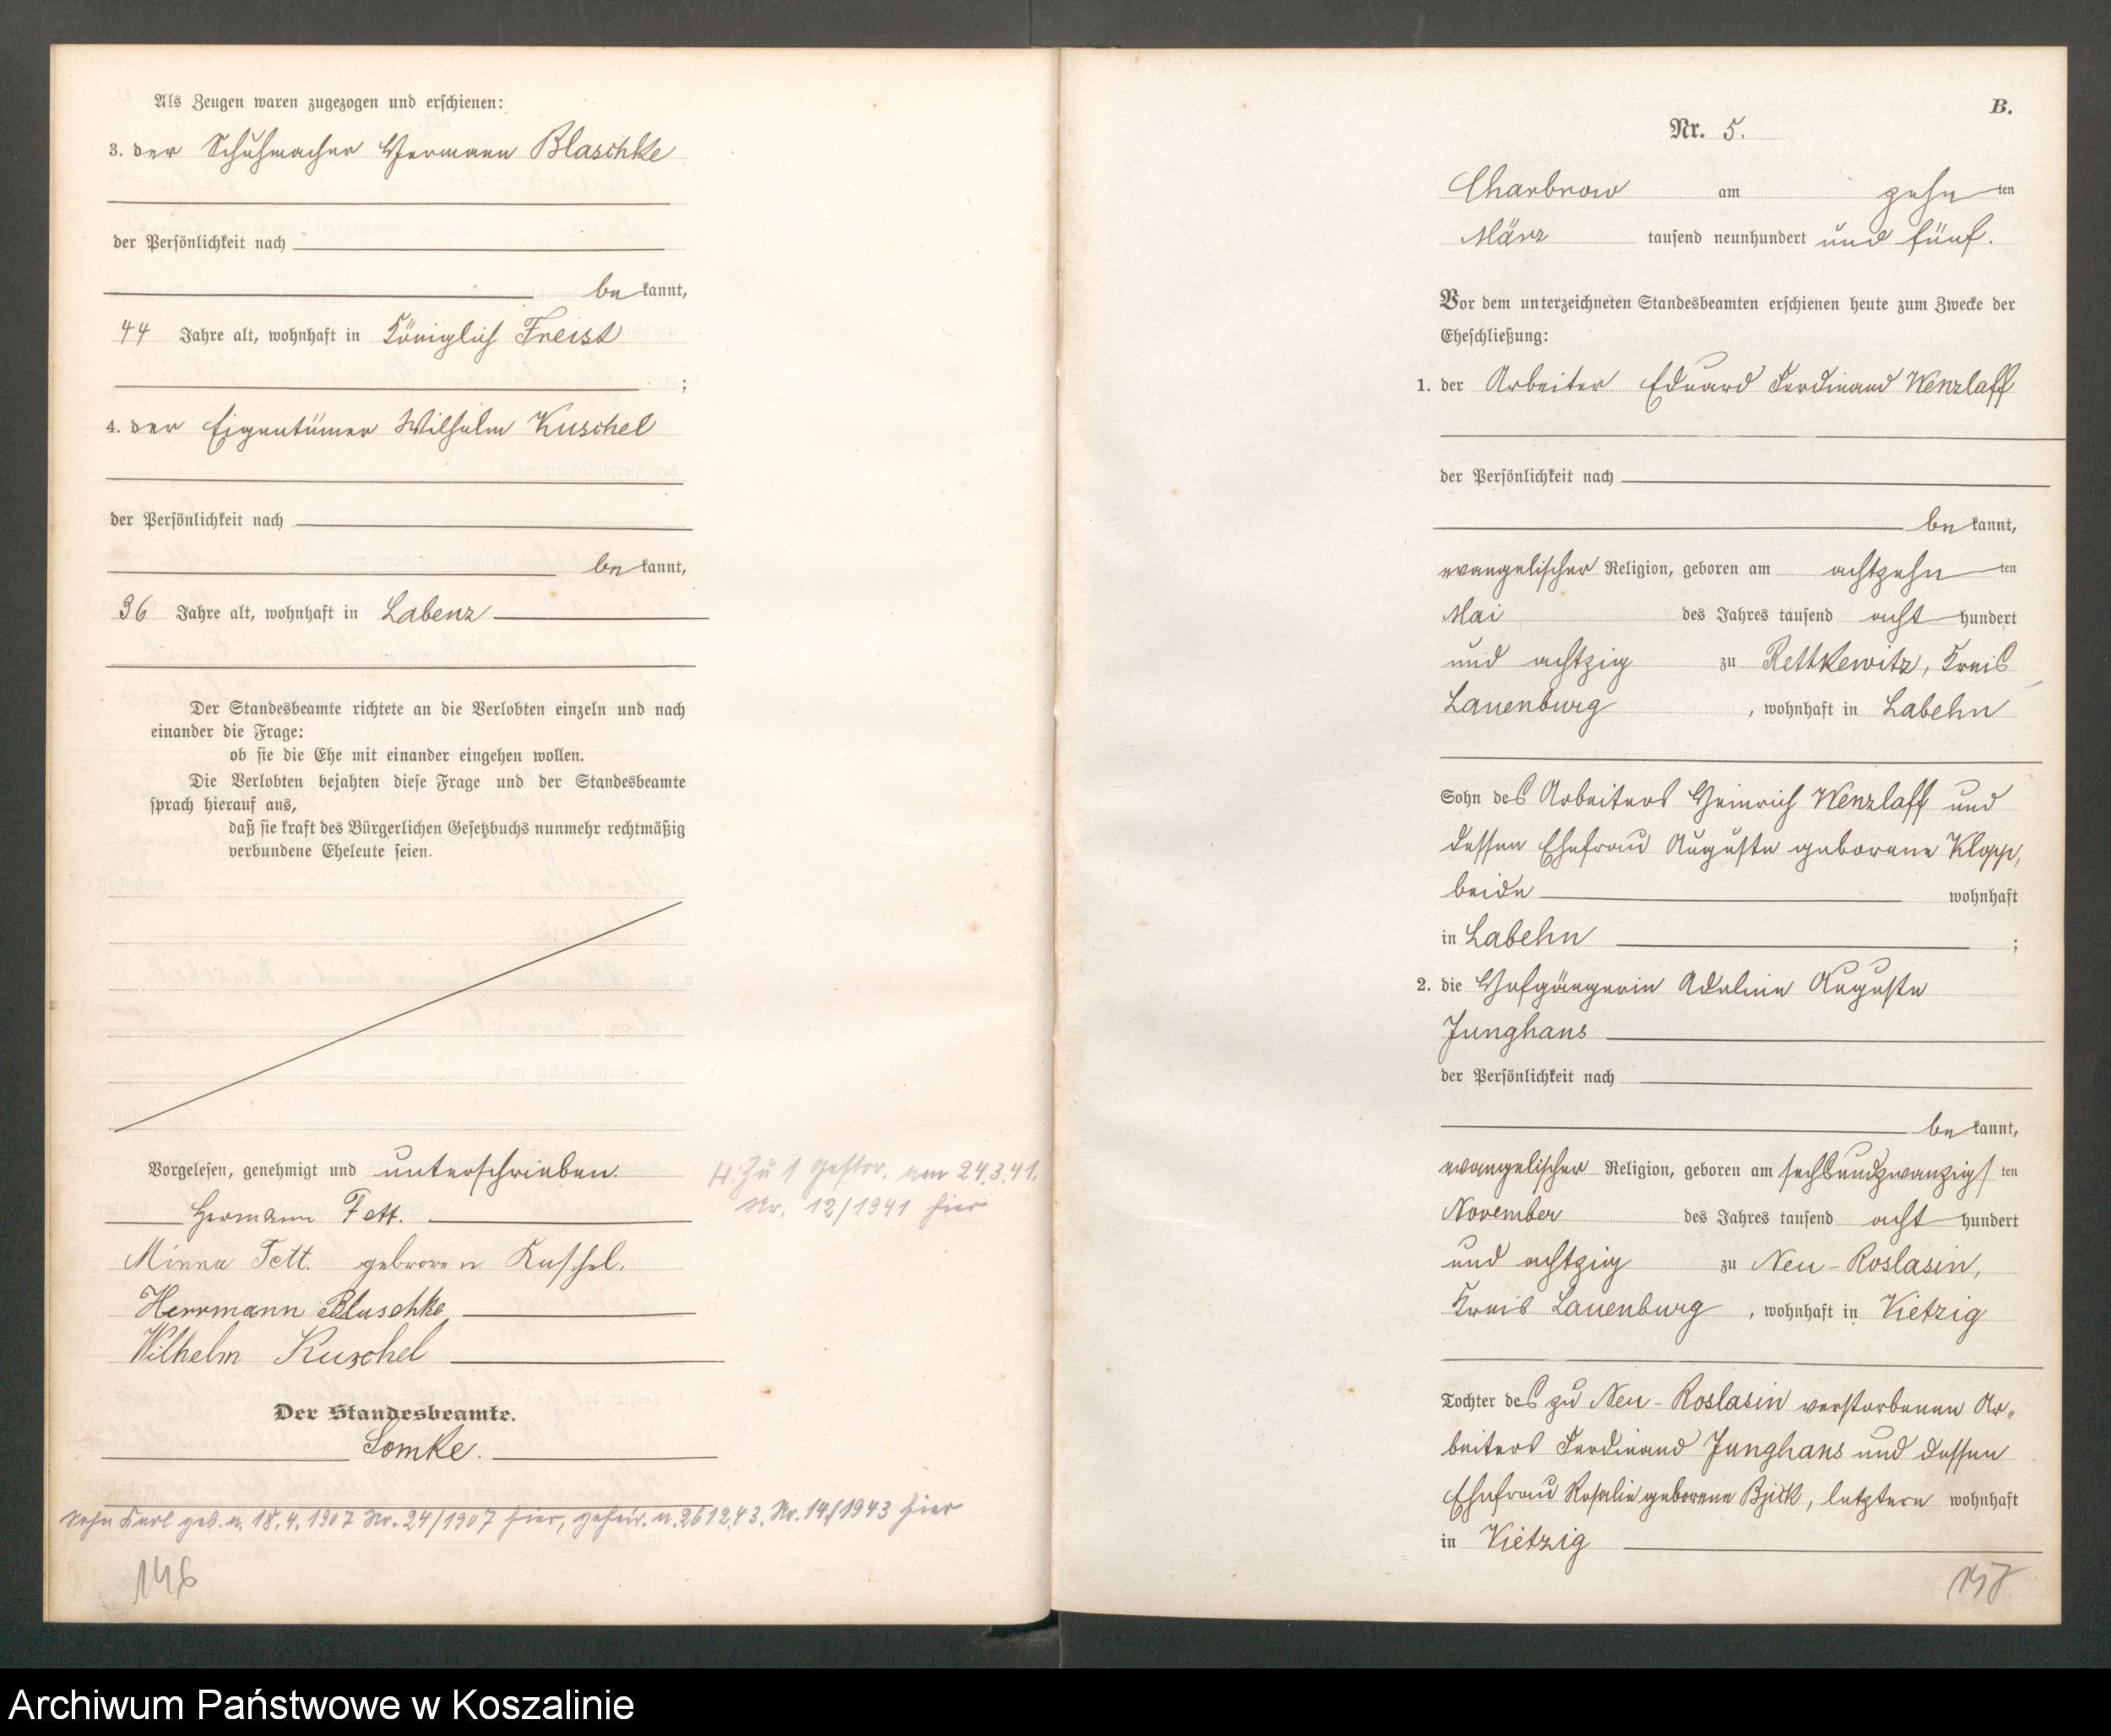 Als Zeugen waren zugezogen und erschienen:
3. der Schuhmacher Hermann Blaschke
der Persönlichkeit nach
be kannt,
44 Jahre alt, wohnhaft in Königlich Freist
;
4. der Eigentümer Wilhelm Kuschel
der Persönlichkeit nach
be kannt,
36 Jahre alt, wohnhaft in Labenz
Der Standesbeamte richtete an die Verlobten einzeln und nach
einander die Frage:
ob sie die Ehe mit einander eingehen wollen.
Die Verlobten bejahten diese Frage und der Standesbeamte
sprach hierauf aus,
daß sie kraft des Bürgerlichen Gesetzbuchs nunmehr rechtmäßig
verbundene Eheleute seien.
Vorgelesen, genehmigt und unterschrieben.
Hermann Fett.
Minna Fett. geborene Kuschel.
Herrmann Blaschke
Wilhelm Kuschel
Der Standesbeamte.
Lomke.
H: Zu 1 gestor. am 24.3.41.
Nr. 12/1941 hier
Sohn Karl geb. a. 18.4.1907 Nr. 24/1907 hier, geheir. a. 26.12.43. Nr. 14/1943 hier
146
B.
Nr. 5.
Charbrow am zehn ten
März tausend neunhundert und fünf.
Vor dem unterzeichneten Standesbeamten erschienen heute zum Zwecke der
Eheschließung:
1. der Arbeiter Eduard Ferdinand Wenzlaff
der Persönlichkeit nach
be kannt,
evangelischer Religion, geboren am achtzehn ten
Mai des Jahres tausend acht hundert
und achtzig zu Rettkewitz, Kreis
Lauenburg, wohnhaft in Labehn
Sohn des Arbeiters Heinrich Wenzlaff und
dessen Ehefrau Auguste geborene Klopp,
beide wohnhaft
in Labehn ;
2. die Hofgängerin Adeline Auguste
Junghans
der Persönlichkeit nach
be kannt,
evangelischer Religion, geboren am sechsundzwanzig ten
November des Jahres tausend acht hundert
und achtzig zu Neu-Roslasin,
Kreis Lauenburg, wohnhaft in Vietzig
Tochter des zu Neu-Roslasin verstorbenen Ar„
beiters Ferdinand Junghans und dessen
Ehefrau Rosalie geborene Bjick, letztere wohnhaft
in Vietzig
Archiwum Państwowe w Koszalinie